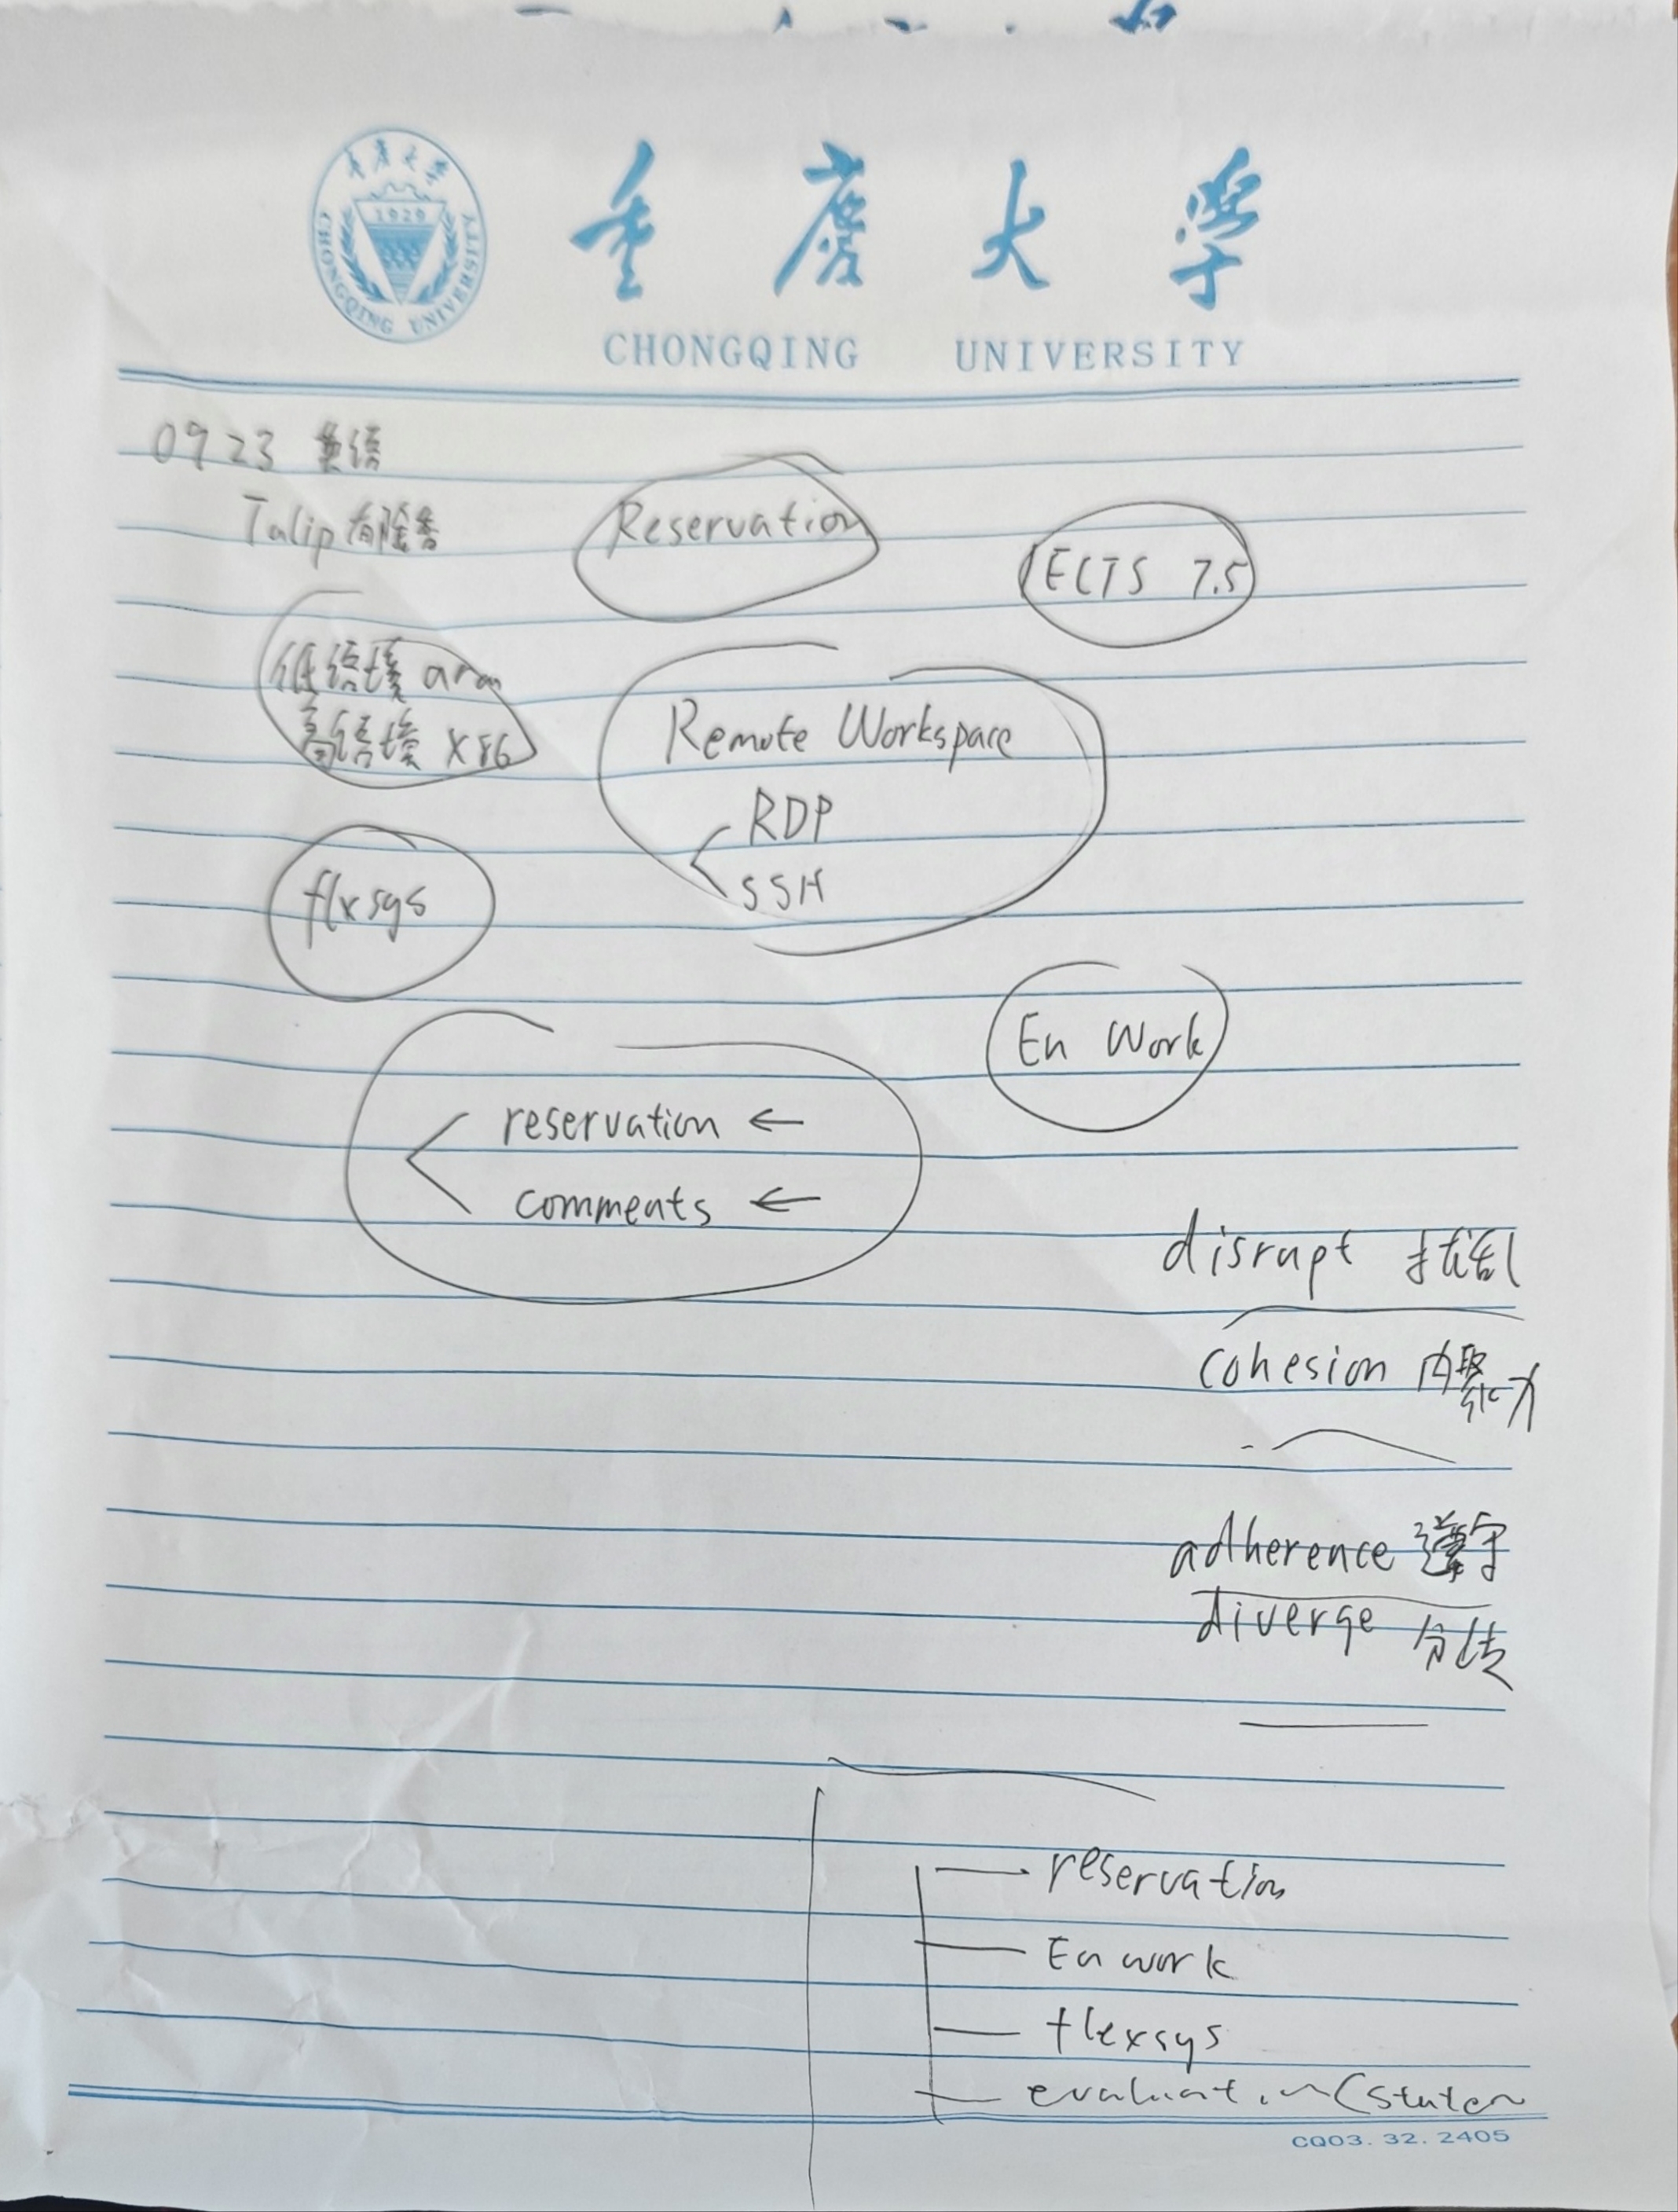 重庆大学
1929
CHONGQING UNIVERSITY
重庆大学
CHONGQING UNIVERSITY
0923 英语
Tulip 有除害
Reservation
ECTS 7.5
低语境 arm
高语境 X86
Remote Workspace
RDP
SSH
flxsys
En Work
reservation ←
comments ←
disrupt 扰乱
cohesion 内聚力
adherence 遵守
diverge 分歧
reservation
En work
flexsys
evaluation
CQ03.32.2405